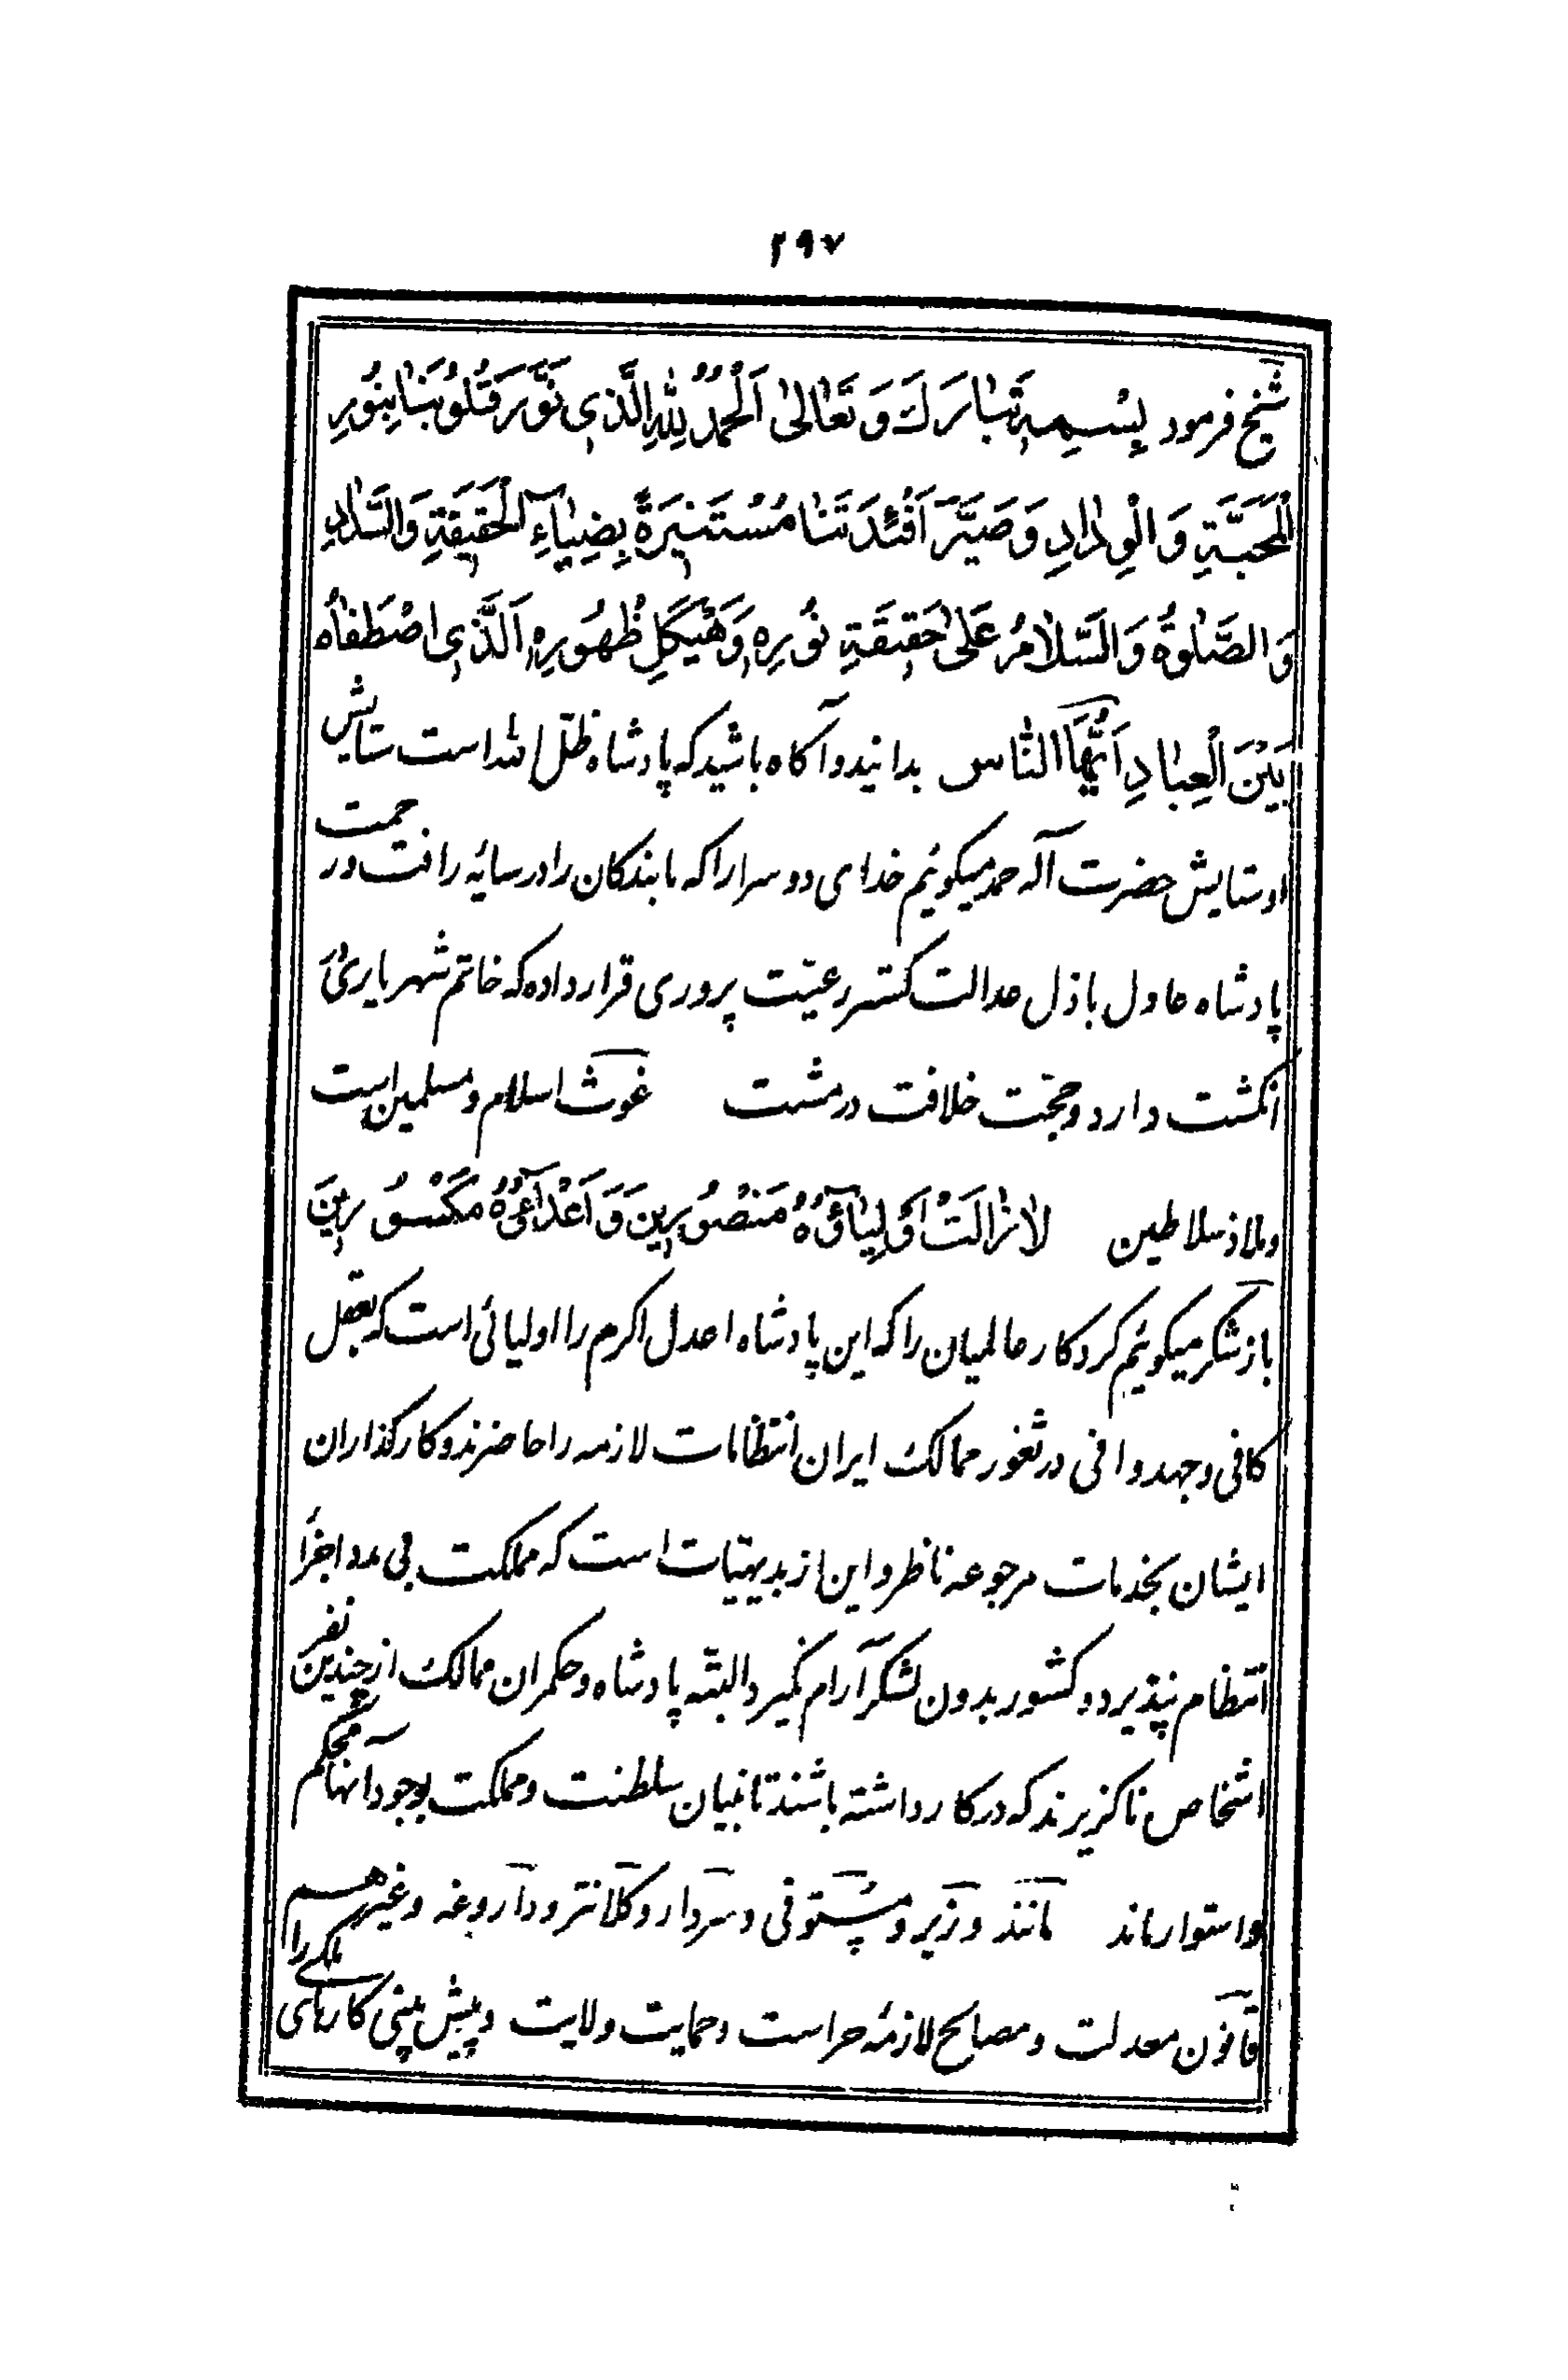 ۲۹۷
شیخ فرمود بِسْمِهِ تَبَارَكَ وَ تَعَالىٰ اَلْحَمْدُ لِلّٰهِ الَّذِی نَوَّرَ قُلُوبَنَا بِنُورِ
الْمَحَبَّةِ وَ الْوِدَادِ وَ صَیَّرَ اَفْئِدَتَنَا مُسْتَنِیرَةً بِضِیَآءِ الْحَقِیقَةِ وَ السَّدَادِ
وَ الصَّلٰوةُ وَ السَّلَامُ عَلىٰ حَقِیقَةِ نُورِهِ وَ هَیْكَلِ ظُهُورِهِ اَلَّذِی اصْطَفَاهُ
بَیْنَ الْعِبَادِ اَیُّهَا النَّاس بدانید و آگاه باشید که پادشاه ظلّ الله است ستایش
او ستایش حضرت آله حمد میکوئیم خدای دو سرا را که ما بندکان را در سایهٔ رافت و رحمت
پادشاه عادل باذل عدالت کستر رعیّت پروری قرار داده که خاتم شهریاری در
انکشت دارد و حجّت خلافت در مشت غوث اسلام و مسلمین است
و ملاذ سلاطین لَا زَالَتْ اَوْلِیَآؤُهُ مَنْصُورِینَ وَ اَعْدَآؤُهُ مَكْسُورِینَ
باز شکر میکوئیم کردکار عالمیان را که این پادشاه اعدل اکرم را اولیائی است که بعقل
کافی و جهد وافی در ثغور ممالک ایران انتظامات لازمه را حاضرند و کارکذاران
ایشان بخدمات مرجوعه ناظر و این از بدیهیّات است که مملکت بی مدد اجزا
انتظام نپذیرد و کشور بدون لشکر آرام نکیرد البتّه پادشاه و حکمران ممالک از چندین نفر
اشخاص ناکزیرند که در کار داشته باشند تا بنیان سلطنت و مملکت بوجود آنها محکم
و استوار ماند مانند وزیر و مستوفی و سردار و کلانتر و داروغه و غیرهم
قانون معدلت و مصالح لازمهٔ حراست و حمایت ولایت و پیش بینی کارهای ملکی را